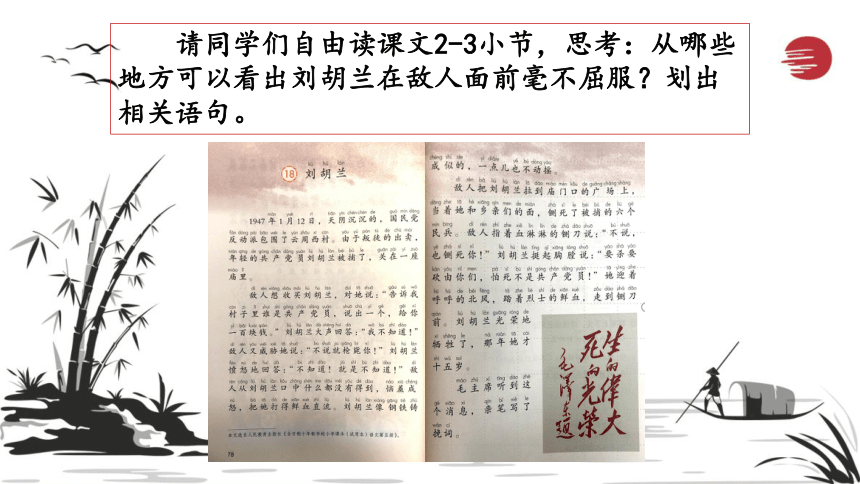 请同学们自由读课文2-3小节，思考：从哪些
地方可以看出刘胡兰在敌人面前毫不屈服？划出
相关语句。
18 刘胡兰
1947年1月12日，天阴沉沉的，国民党
反动派包围了云周西村。由于叛徒的出卖，
年轻的共产党员刘胡兰被捕了，关在一座
庙里。
敌人想收买刘胡兰，对她说：“告诉我
村子里谁是共产党员，说出一个，给你
一百块钱。”刘胡兰大声回答：“我不知道！”
敌人又威胁她说：“不说就枪毙你！”刘胡兰
愤怒地回答：“不知道！就是不知道！”敌
人从刘胡兰口中什么都没有得到，恼羞成
怒，把她打得鲜血直流。刘胡兰像钢铁铸
78
成似的，一点儿也不动摇。
敌人把刘胡兰拉到庙门口的广场上，
当着她和乡亲们的面，铡死了被捕的六个
民兵。敌人指着血淋淋的铡刀说：“不说，
也铡死你！”刘胡兰挺起胸膛说：“要杀要
砍由你们，怕死不是共产党员！”她迎着
呼呼的北风，踏着烈士的鲜血，走到铡刀
前。刘胡兰光荣地
牺牲了，那年她才
十五岁。
毛主席听到这
个消息，亲笔写了
挽词。
生的偉大
死的光榮
毛泽东題